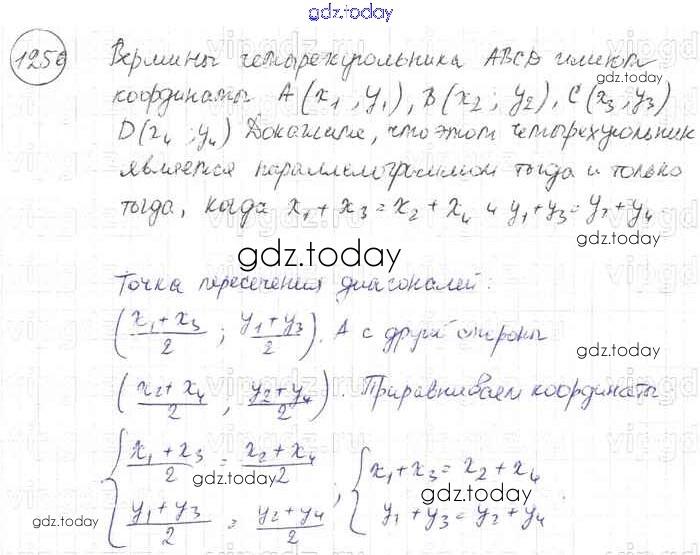 gdz.today
1256 Вершины четырехугольника ABCD имеют
координаты A(x₁; y₁), B(x₂; y₂), C(x₃; y₃)
D(x₄; y₄) Докажите, что этот четырехугольник
является параллелограммом тогда и только
тогда, когда x₁ + x₃ = x₂ + x₄ и y₁ + y₃ = y₂ + y₄
gdz.today
Точка пересечения диагоналей:
((x₁ + x₃)/2 ; (y₁ + y₃)/2). А с другой стороны
((x₂ + x₄)/2 , (y₂ + y₄)/2). Приравниваем координаты
{(x₁ + x₃)/2 = (x₂ + x₄)/2 ; {x₁ + x₃ = x₂ + x₄
(y₁ + y₃)/2 = (y₂ + y₄)/2 y₁ + y₃ = y₂ + y₄.
gdz.today
gdz.today
gdz.today
gdz.today
gdz.today
gdz.today